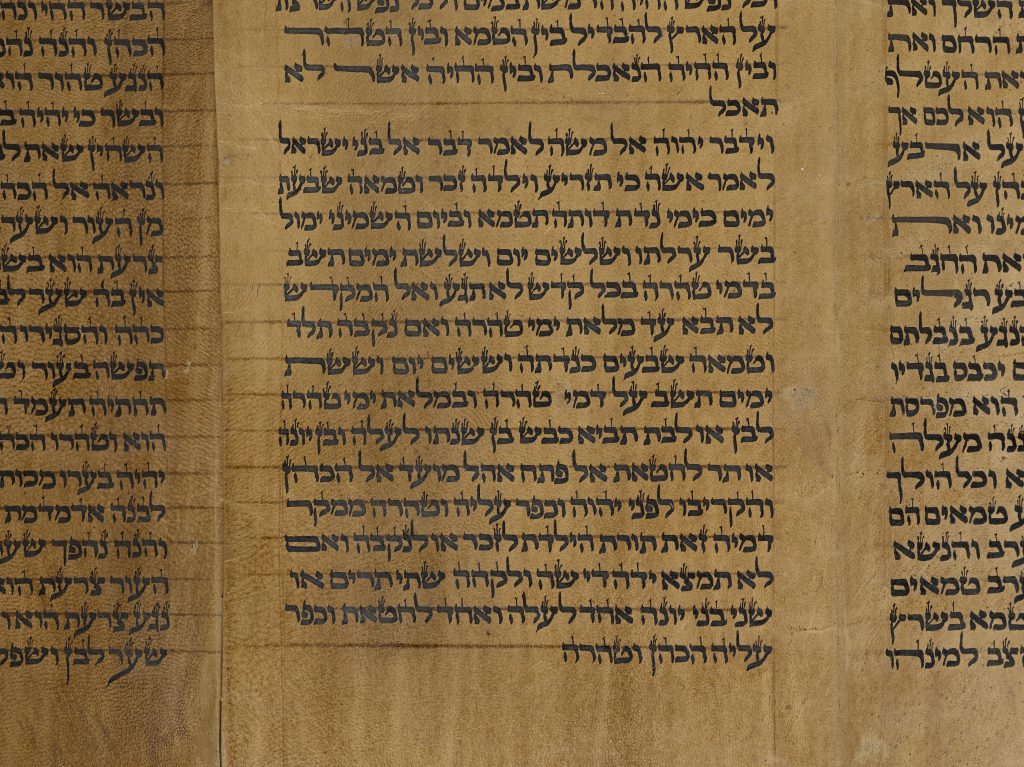 השלך ואת
הרחם ואת
ואת העטלף
הוא לכם אך
על ארבע
על הארץ
ואת
ואת החגב
רגלים
בנבלתם
יכבס בגדיו
הוא מפרסת
מעלה
וכל הולך
טמאים הם
והנשא
טמאים
בשרץ
הצב למינהו
וכל נפש החיה הרמשת במים ולכל נפש השרצת
על הארץ להבדיל בין הטמא ובין הטהר
ובין החיה הנאכלת ובין החיה אשר לא
תאכל
וידבר יהוה אל משה לאמר דבר אל בני ישראל
לאמר אשה כי תזריע וילדה זכר וטמאה שבעת
ימים כימי נדת דותה תטמא וביום השמיני ימול
בשר ערלתו ושלשים יום ושלשת ימים תשב
בדמי טהרה בכל קדש לא תגע ואל המקדש
לא תבא עד מלאת ימי טהרה ואם נקבה תלד
וטמאה שבעים כנדתה וששים יום וששת
ימים תשב על דמי טהרה ובמלאת ימי טהרה
לבן או לבת תביא כבש בן שנתו לעלה ובן יונה
או תר לחטאת אל פתח אהל מועד אל הכהן
והקריבו לפני יהוה וכפר עליה וטהרה ממקר
דמיה זאת תורת הילדת לזכר או לנקבה ואם
לא תמצא ידה די שה ולקחה שתי תרים או
שני בני יונה אחד לעלה ואחד לחטאת וכפר
עליה הכהן וטהרה
הבשר החי
הכהן והנה
הנגע טהור הוא
ובשר כי יהיה
השחין שאת
ונראה אל
מן העור ושער
צרעת הוא
אין בה שער
כהה והסגירו
תפשה בעור
תחתיה תעמד
הוא וטהרו
יהיה בערו מכות
לבנה אדמדמת
והנה נהפך
העור צרעת
נגע צרעת הוא
שער לבן ושפל